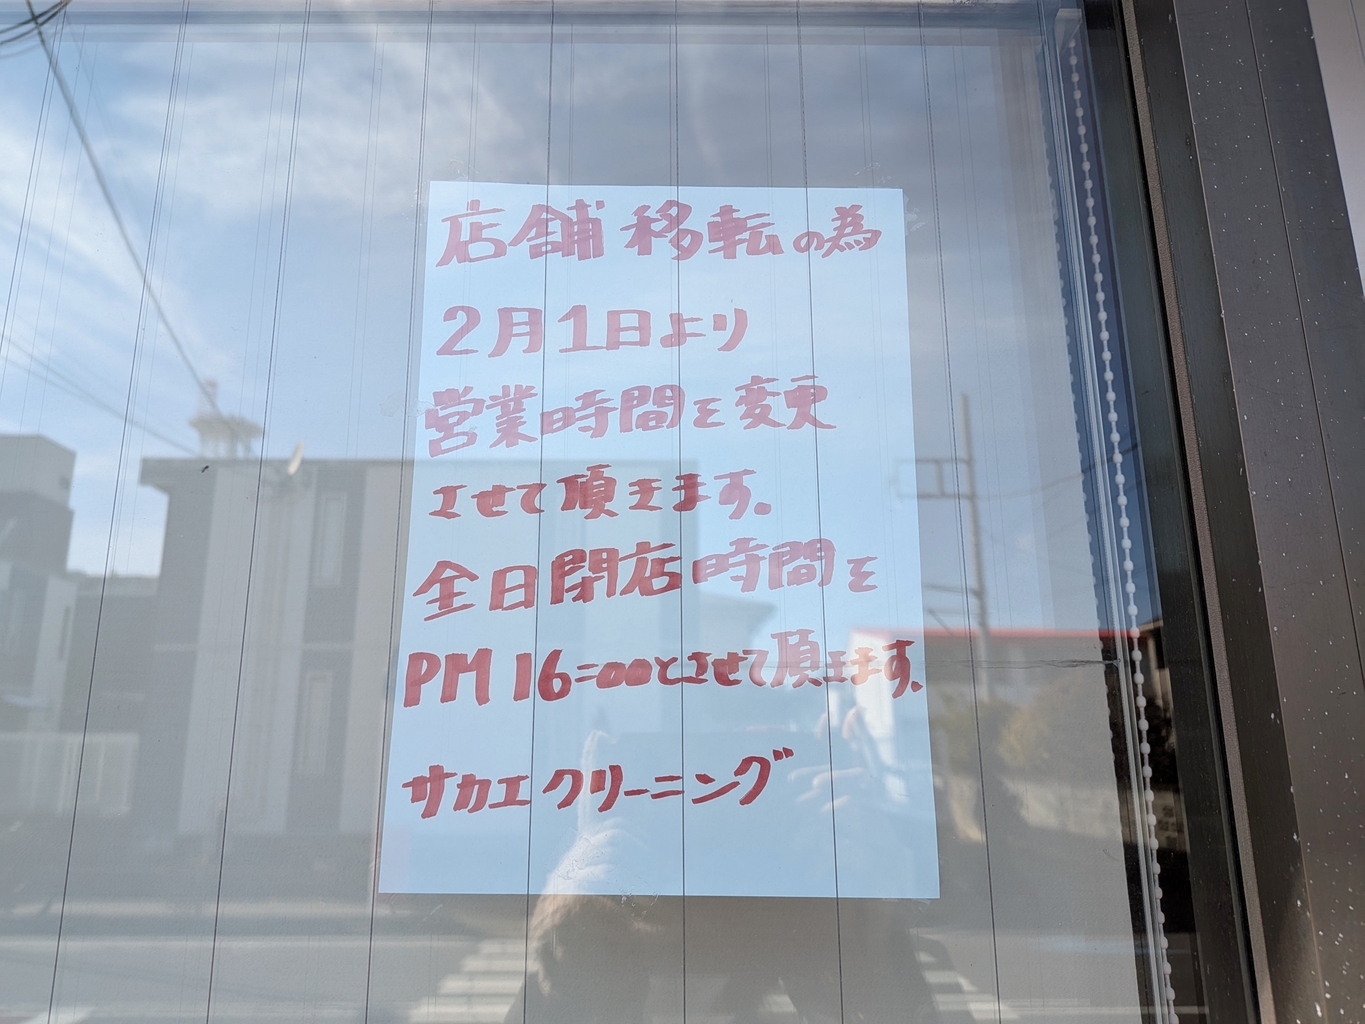 店舗移転の為
2月1日より
営業時間を変更
させて頂きます。
全日閉店時間を
PM 16:00とさせて頂きます。
サカエクリーニング